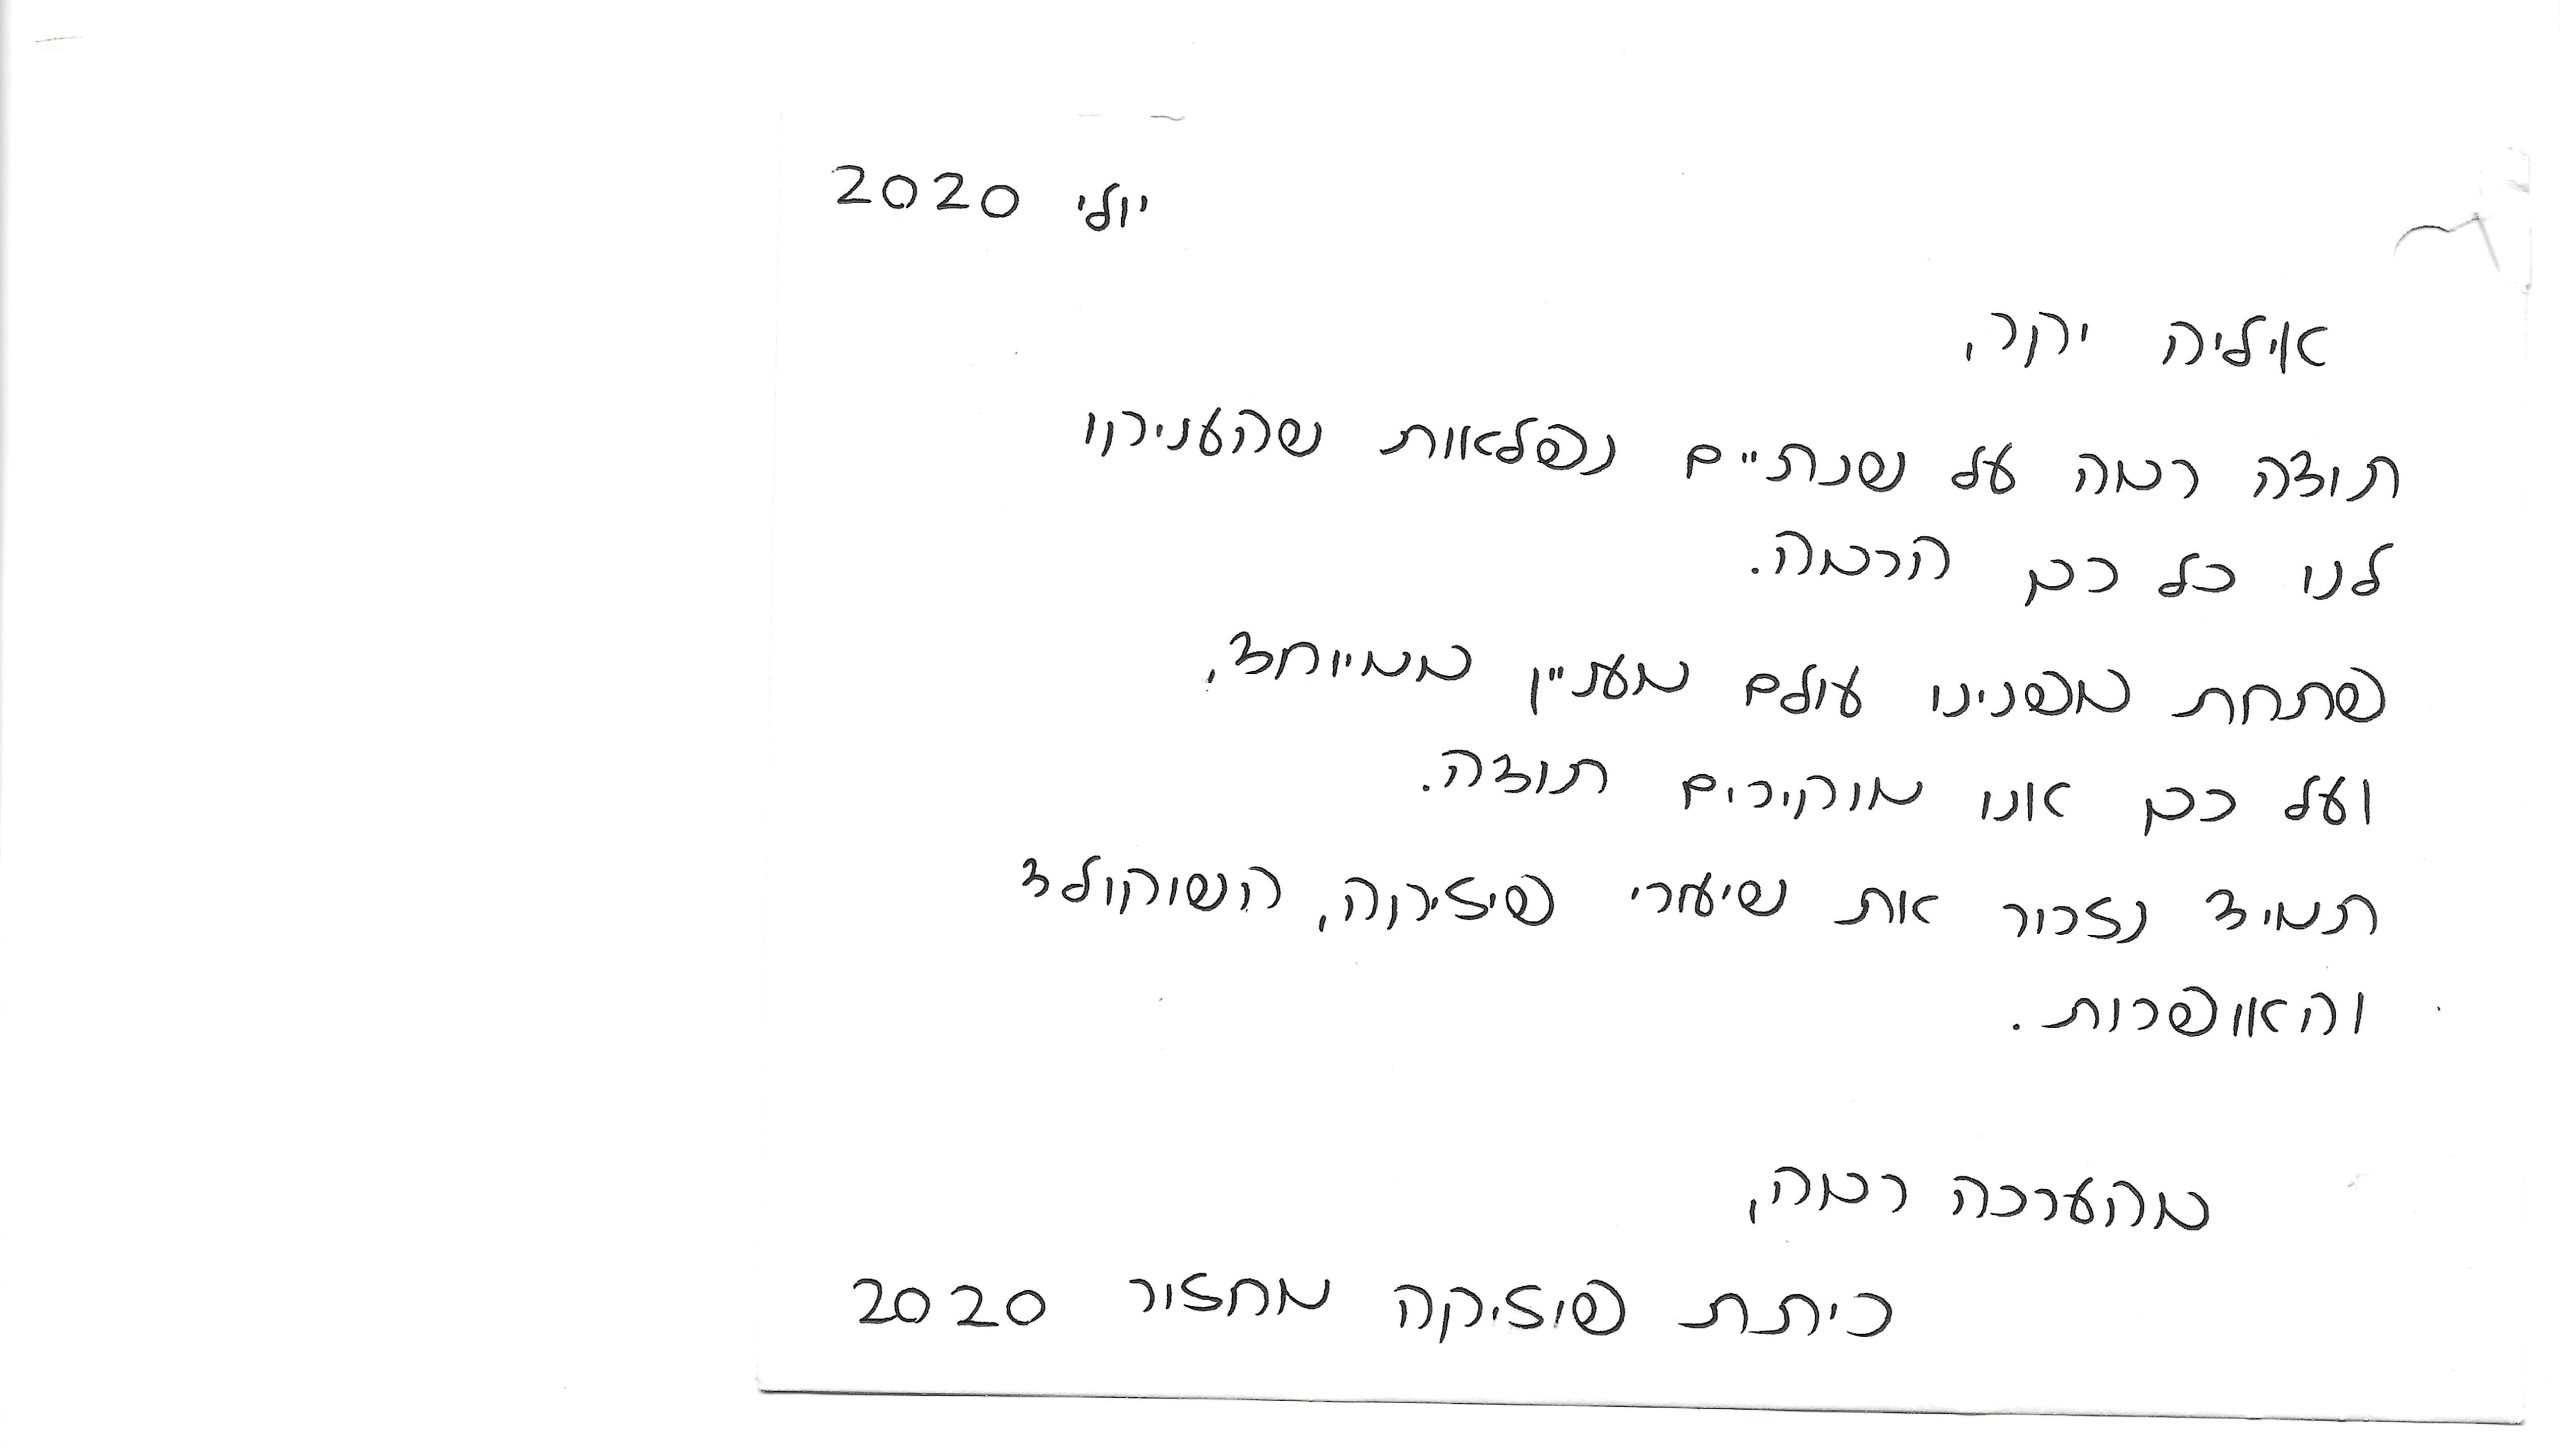 יולי 2020
איליה יקר,
תודה רבה על שנתיים נפלאות שהעניקו
לנו כל כך הרבה.
פתחת בפנינו עולם מעניין במיוחד,
ועל כך אנו מוקירים תודה.
תמיד נזכור את שיעורי פיזיקה, השוקולד
והאופרות.
בהערכה רבה,
כיתת פיזיקה מחזור 2020